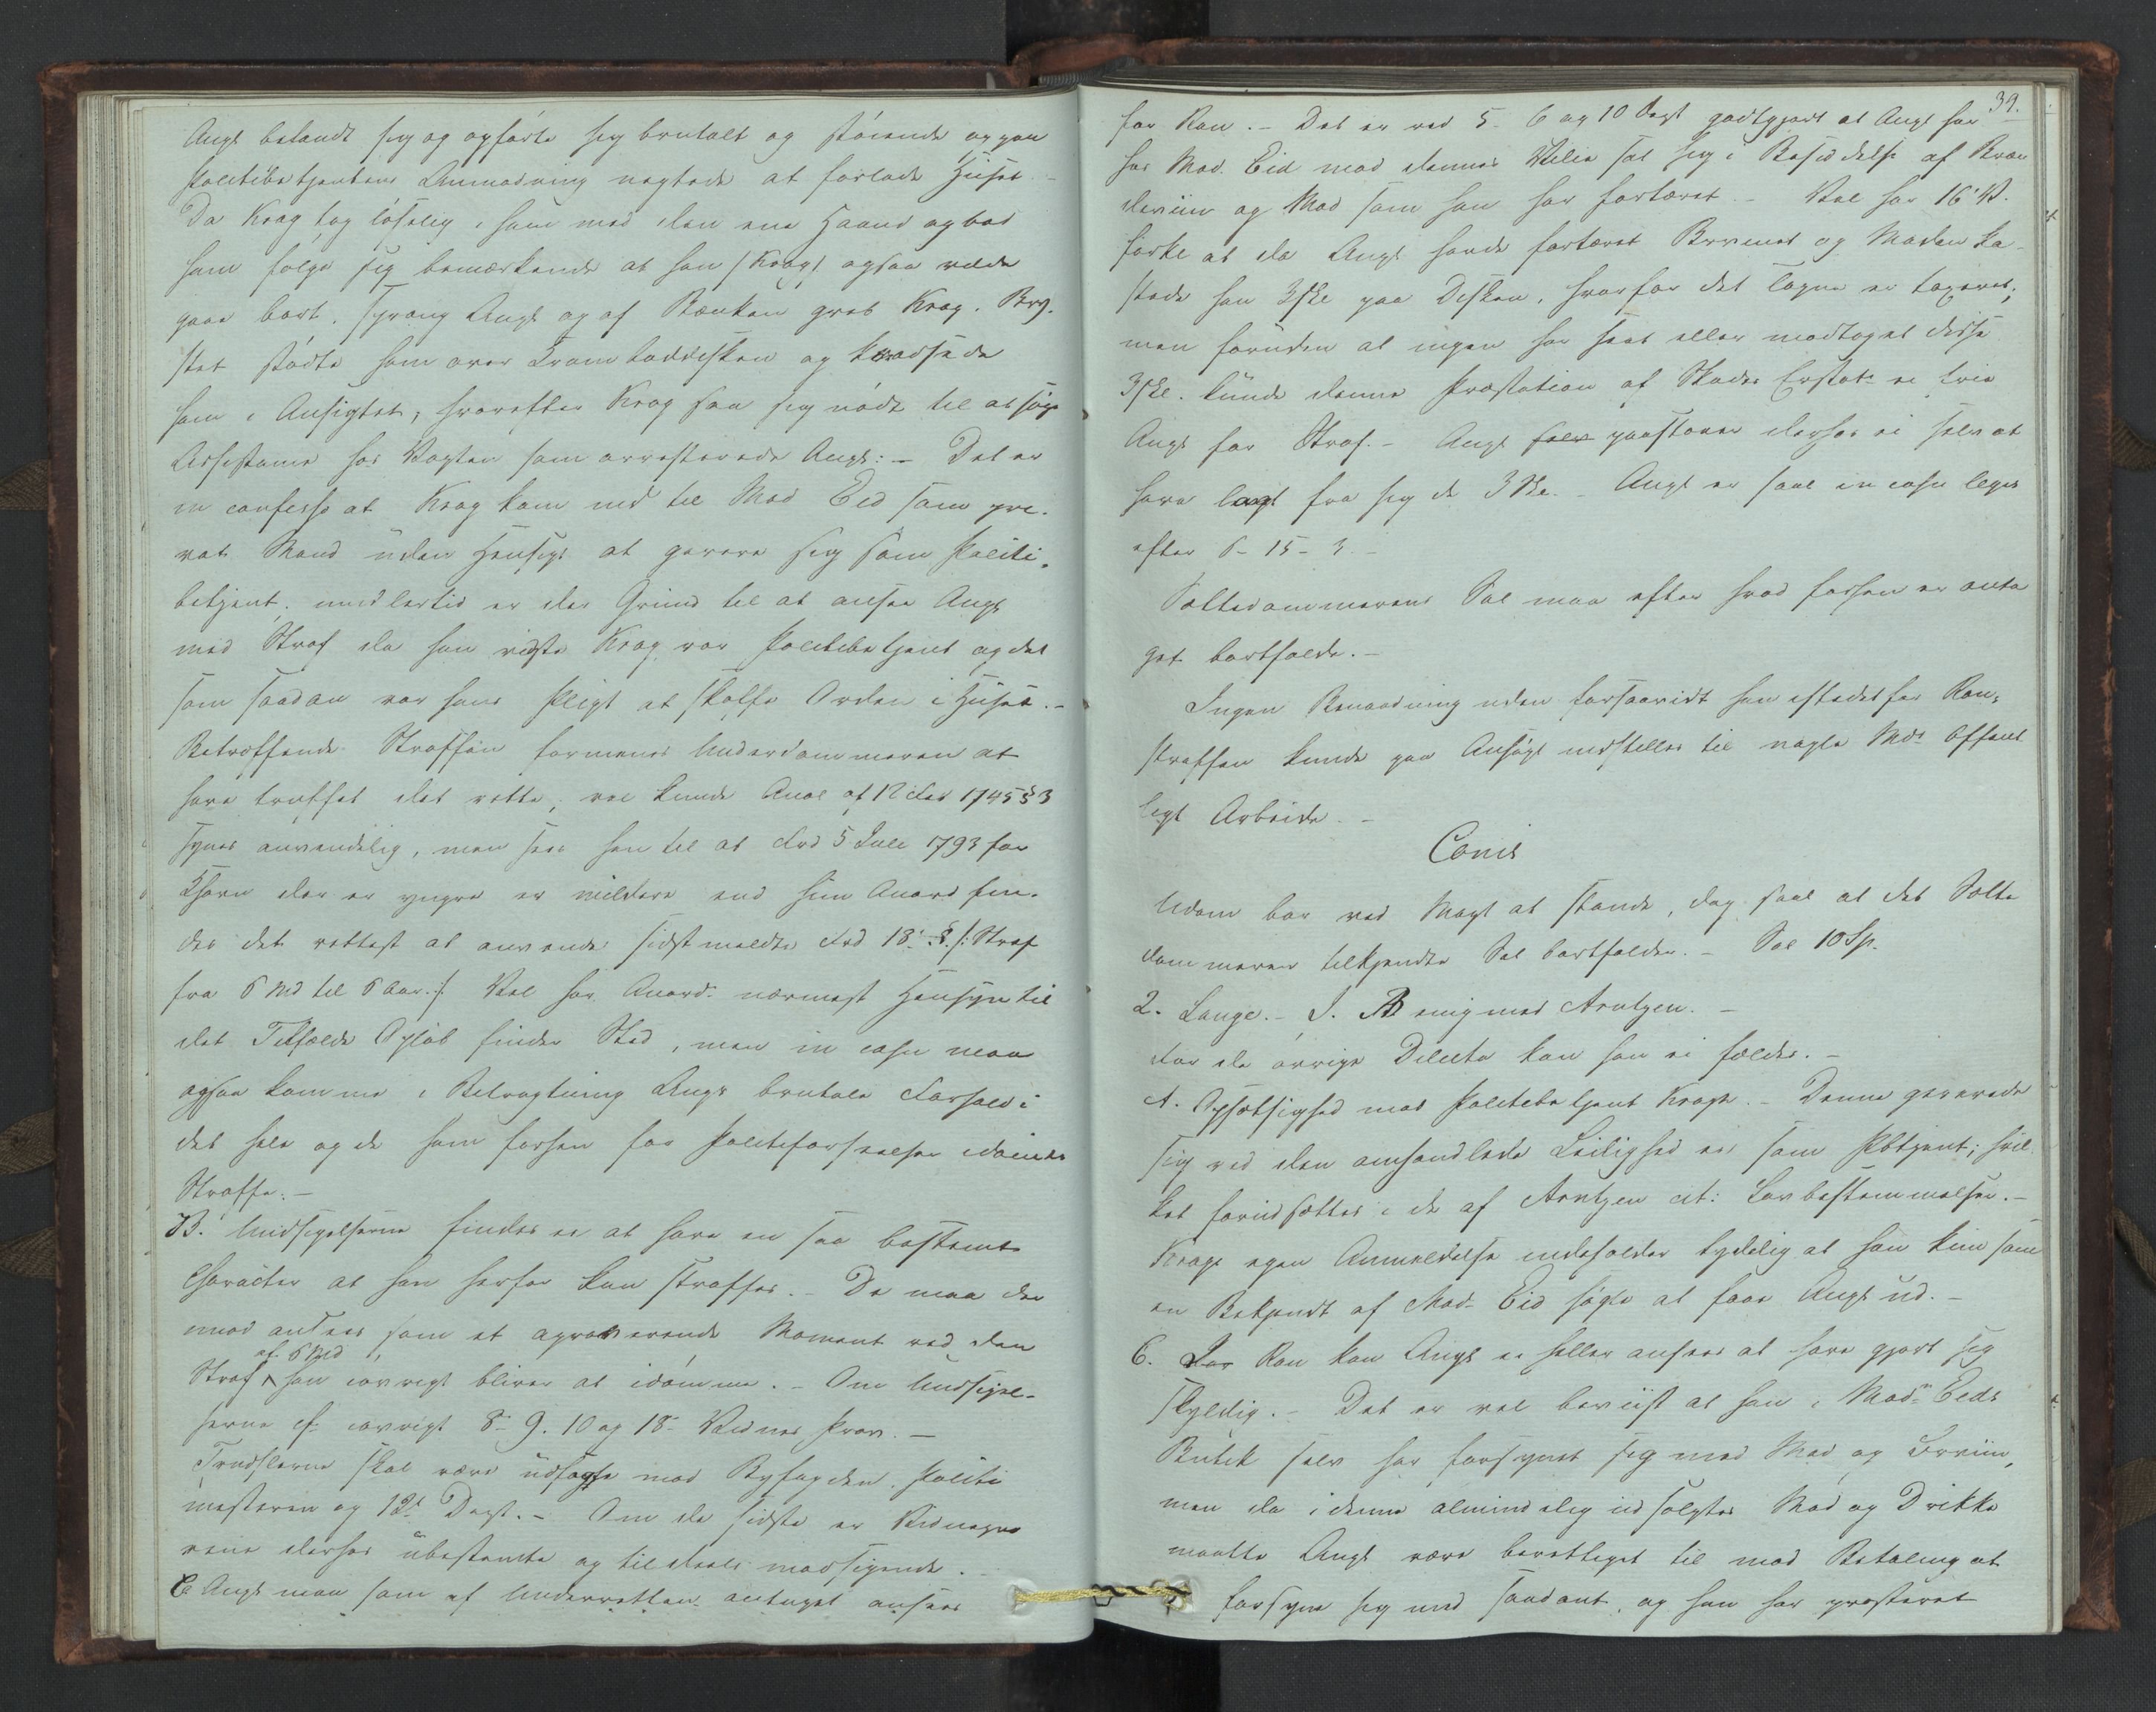 Angl befandt sig og opførte sig brutalt og støiende og paa
Politibetjentens Anmodning negtede at forlade Huset. –
Da Krog tog løselig i ham med den ene Haand og bad
ham følge sig bemærkende at han /Krog/ ogsaa vilde
gaae bort, sprang Angl op af Bænken greb Krog i Bry-
stet stødte ham over Kramboddisken og kradsede
ham i Ansigtet, hvorefter Krog saa sig nødt til at søge
Assistance hos Vagten som arresterede Angl: – Det er
in confesso at Krog kom ind til Mad Eid som pri-
vat Mand uden Hensigt at gerere sig som Politi-
betjent. imidlertid er der Grund til at ansee Angl
med Straf da han vidste Krog var Politibetjent og det
som saadan var hans Pligt at skaffe Orden i Huset. –
Betræffende Straffen formenes Underdommeren at
have truffet det rette, vel kunde Anor af 12 Feb 1745 § 3
synes anvendelig, men sees hen til at Frd 5 Juli 1793 for
Khavn der er yngre er mildere end hiin Anord fin-
des det rettest at anvende sidstmeldte Frd 18 §. /: Straf
fra 6 Md til 6 Aar. :/ Vel har Anord. nærmest Hensyn til
det Tilfælde Opløb finder Sted, men in casu maa
ogsaa komme i Betragtning Angs brutale Forhold i
det hele og de ham forhen for Politiforseelser idømte
Straffe. –
B. Undsigelserne findes ei at have en saa bestemt
Character at han herfor kan straffes. – De maa der
imod ansees som et agraverende Moment ved den
Straf af 6 Md han iøvrigt bliver at idømme. – Om Undsigel-
serne cf. iøvrigt 8- 9. 10 og 18- Vidnes Prov. –
Trudslerne skal være udsagte mod Byfogden, Politi
mesteren og 12te Depst. – Om de sidste er Vidnepro
vene derhos ubestemte og til deels modsigende. –
C Angl maa som af Underretten antaget ansees
39.
for Ran. – Det er ved 5- 6 og 10 Depst godtgjort at Angl har
hos Mad. Eid mod dennes Villie sat sig i Besiddelse af Bræn
deviin og Mad som han har fortæret. – Vel har 16' V.
forkl at da Angl havde fortæret Brvinet og Maden ka-
stede han 3 skl paa Disken, hvorfor det tagne er taxeret,
men foruden at ingen har seet eller modtaget disse
3 skl. kunde denne Præstation af Skades Erstatn ei frie
Angl for Straf. – Angl paastaaer derhos ei selv at
have lagt fra sig de 3 skl. – Angl er faal in casu leges
efter 6- 15- 3. –
Sættedommerens Sal maa efter hvad forhen er anta
get bortfalde. –
Ingen Benaadning uden forsaavidt han istedetfor Ran-
straffen kunde paa Ansøgn indstilles til nogle Mdr offent
ligt Arbeide. –
Concl
Udom bør ved Magt at stande, dog saal at det Sætte
dommeren tilkjendte Sal bortfalder. – Sal 10 Sp.
2. Lange. – I. B enig med Arntzen. –
For de øvrige Delicta kan han ei fældes. –
A. Opsætsighed mod Politibetjent Krogh. – Denne gererede
sig ved den omhandlede Leilighed ei som Pbtjent; hvil
ket forudsættes i de af Arntzen cit: Lovbestemmelser. –
Krogs egen Anmeldelse indeholder tydelig at han kun som
en Bekjendt af Mad. Eid søgte at faae Angl ud. –
C. For Ran kan Angl ei heller ansees at have gjort sig
skyldig. – Det er vel beviist at han i Mad. Eids
Butik selv har forsynet sig med Mad og Brviin,
men da i denne almindelig udsolgtes Mad og Drikke
maatte Angl være berettiget til mod Betaling at
forsyne sig med saadant, og han har præsteret